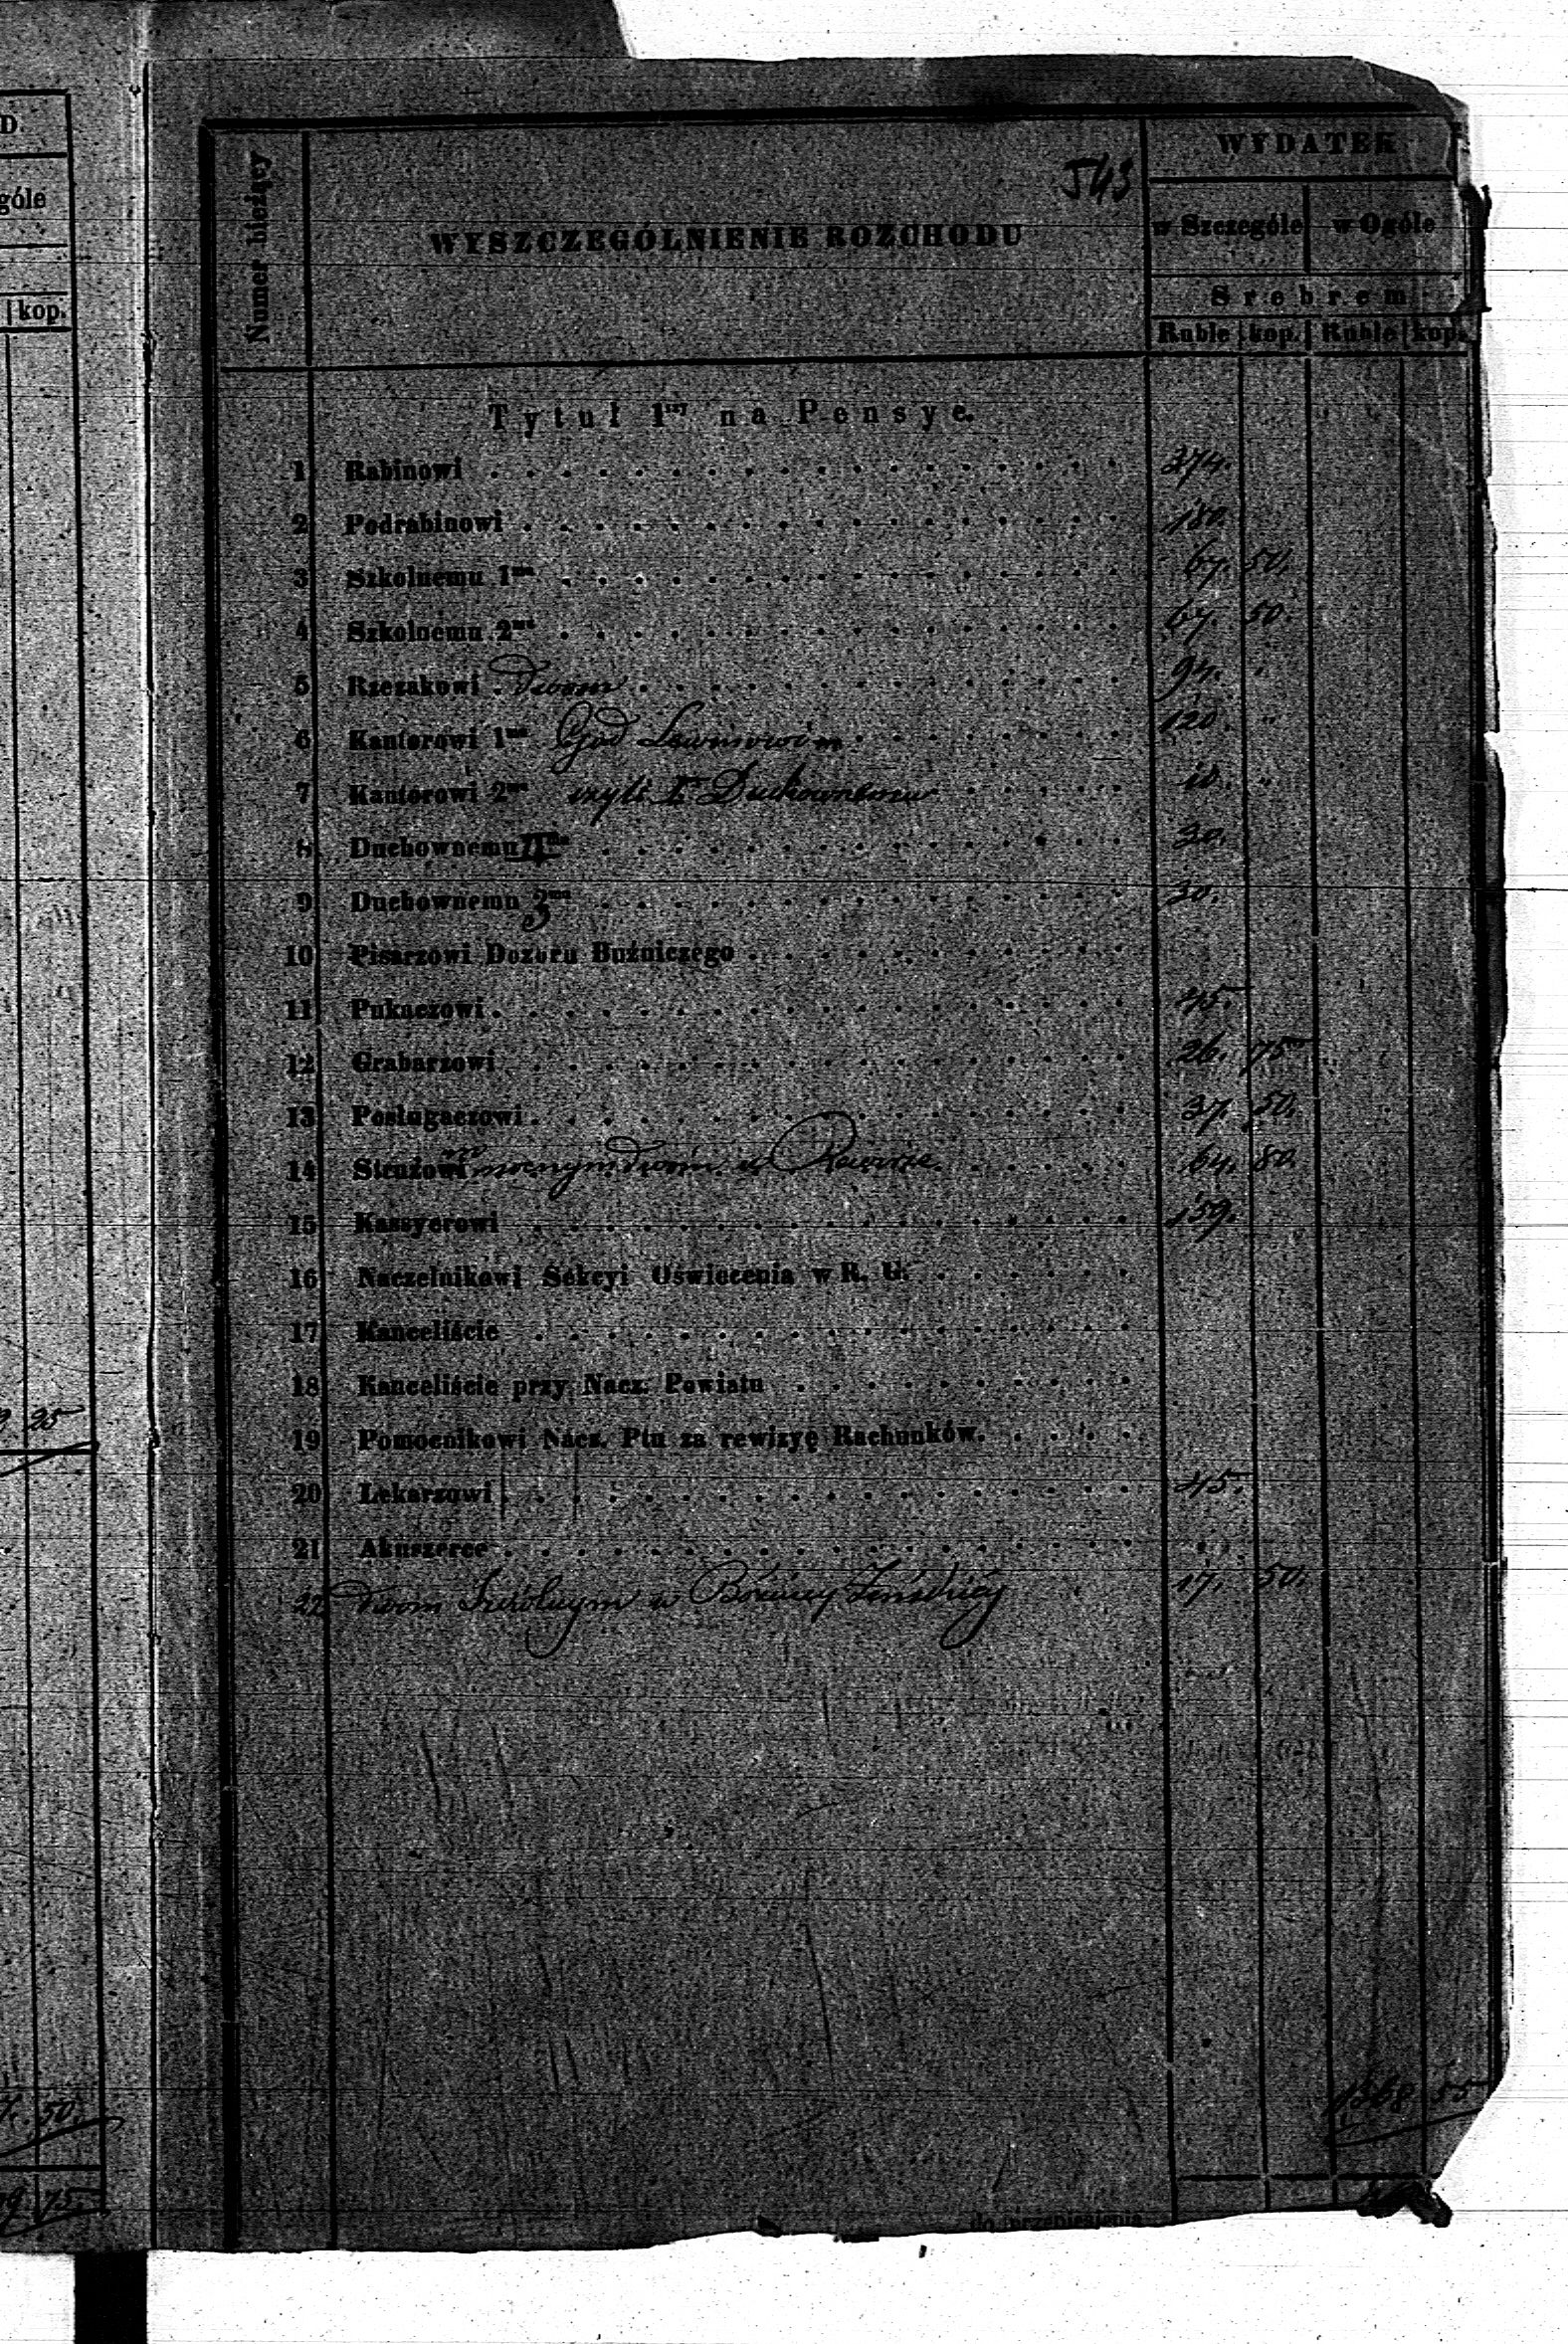 D
góle
kop.
25
50.
75.
543
Numer bieżący
WYSZCZEGÓLNIENIE ROZCHODU
WYDATEK
w Szczególe w Ogóle
Srebrem
Ruble kop. Ruble kop.
Tytuł 1my na Pensye.
1 Rabinowi 374.
2 Podrabinowi 180.
3 Szkolnemu 1mu 67. 50.
4 Szkolnemu 2mu 67. 50.
5 Rzezakowi dwom 94. "
6 Kantorowi 1mu God 120. "
7 Kantorowi 2mu czyli I Duchownemu "
8 Duchownemu II 30.
9 Duchownemu 3mu 30.
10 Pisarzowi Dozoru Bużniczego
11 Pukaczowi 45.
12 Grabarzowi 26. 75
13 Posługaczowi 37. 50.
14 Stróżowi nocnym dwom w 64. 80.
15 Kassyerowi 159.
16 Naczelnikowi Sekcyi Oświecenia w R. G.
17 Kanceliście
18 Kanceliście przy Nacz. Powiatu
19 Pomocnikowi Nacz. Ptu za rewizyę Rachunków.
20 Lekarzowi 45.
21 Akuszerce
22 dwom Szkolnym w Bożnicy Żeńskiej 17. 50.
1368 55
do przeniesienia